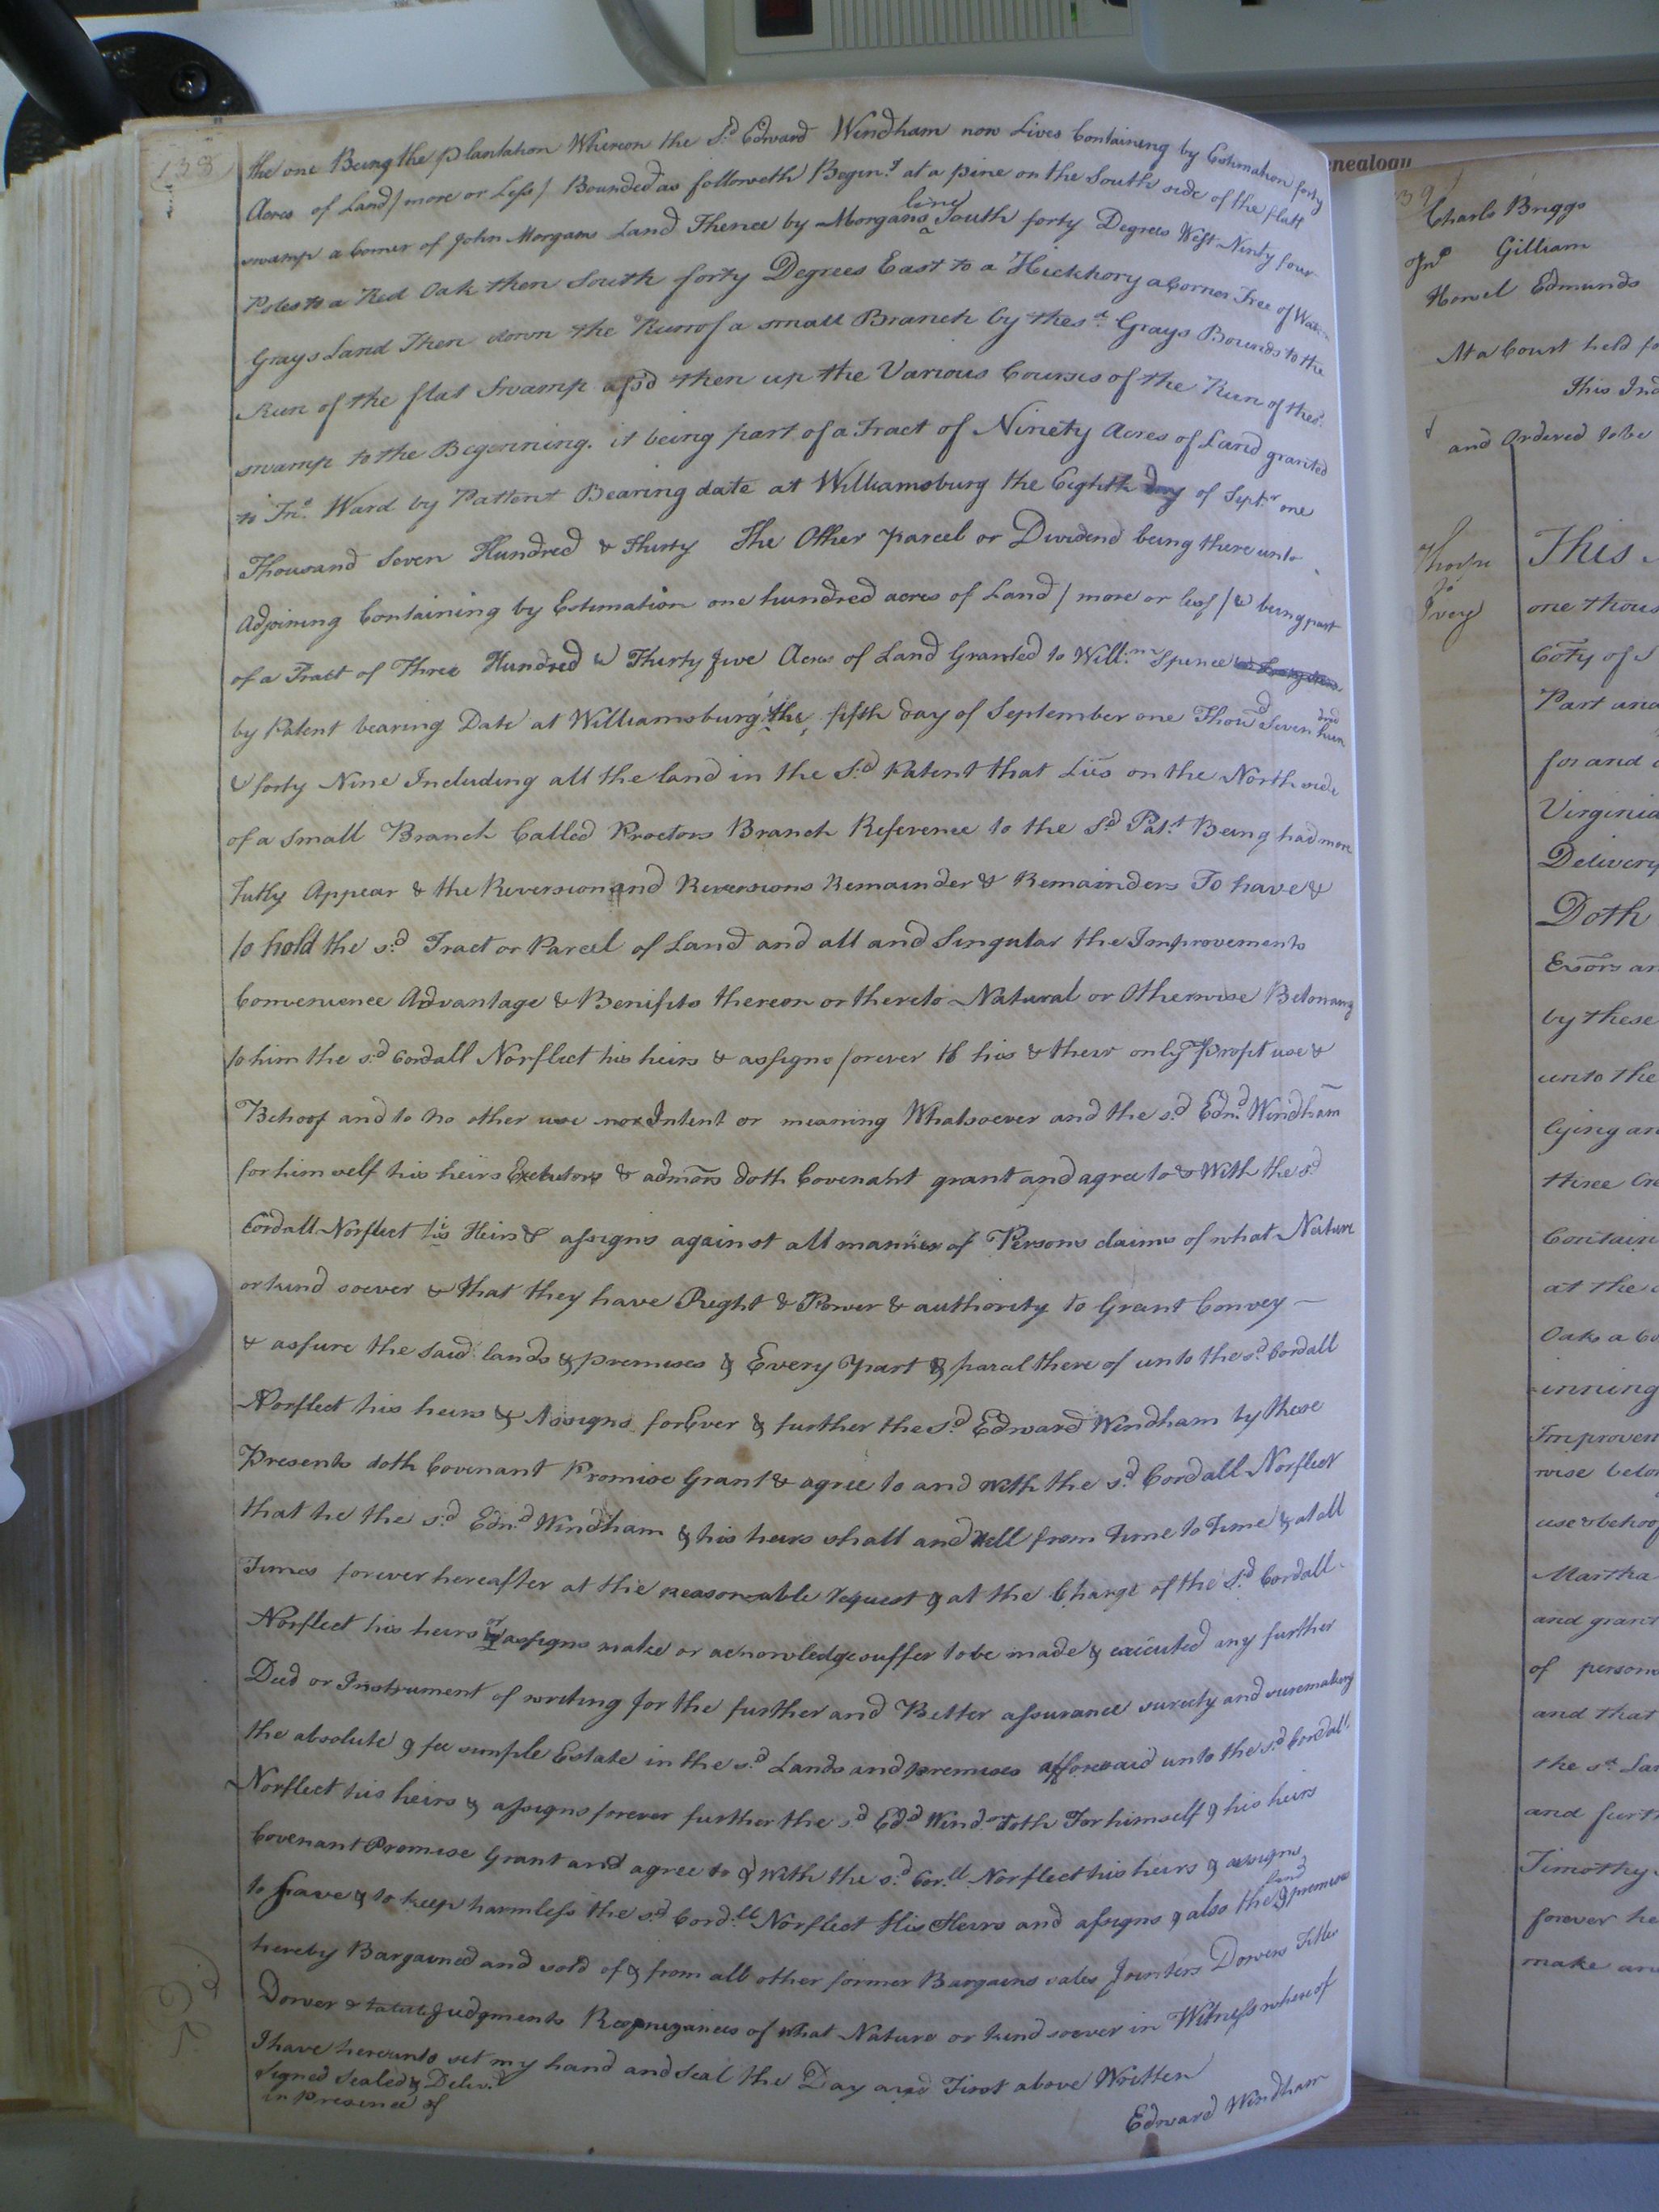 138
the one Being the plantation Whereon the Sd. Edward Windham now Lives Containing by Estimation forty
Acres of Land / more or Less / Bounded as followeth Begin.g at a pine on the South side of the flatt
line
swamp a Corner of John Morgans Land Thence by Morgans South forty Degrees West Ninty four
Poles to a Red Oak then South forty Degrees East to a Hickhory a Corner Tree of
Grays Land Then down the Run of a small Branch by the sd. Grays Bounds to the
Run of the flat Swamp afsd then up the Various Courses of the Run of the sd.
swamp to the Begenning. it being part of a Tract of Ninety Acres of Land granted
to Jno. Ward by Pattent Bearing date at Williamsburg the Eighth day of Septr one
Thousand Seven Hundred & Thirty The Other parcel or Dividend being there unto
Adjoining Containing by Estimation one hundred acres of Land / more or less / & being part
of a Tract of Three Hundred & Thirty five Acres of Land Granted to Will.m Spence
by Patent bearing Date at Williamsburg the fifth day of September one Thoud Seven hundd
& forty Nine Including all the land in the Sd. Patent that Lies on the North side
of a small Branch Called Proctors Branch Reference to the Sd Pat.t Being had more
fully Appear & the Reversion and Reversions Remainder & Remainders To have &
to hold the sd. Tract or Parcel of Land and all and Singular the Improvements
Convenience Advantage & Benifits thereon or thereto Natural or Otherwise Belonang
to him the sd. Cordall Norfleet his heirs & assigns forever to his & their only Propt use &
Behoof and to no other use nor Intent or meaning Whatsoever and the sd. Edwd. Windham
for himself his heirs Executors & admors doth Covenant grant and agree to & With the sd.
Cordall Norfleet his Heirs & assigns against all manner of Persons claims of what Nature
or kind soever & that they have Right & Power & authority to Grant Convey —
& assure the said lands & premises & Every Part & parcal there of unto the sd. Cordall
Norfleet his heirs & Assigns forEver & further the sd. Edward Windham by these
Presents doth Covenant Promise Grant & agree to and with the sd. Cordall Norfleet
that he the sd. Edwd. Windham & his heirs shall and Will from time to Time & at all
Times forever hereafter at the reasonable request & at the Charge of the sd. Cordall
Norfleet his heirs or assigns make or acknowledge suffer to be made & executed any further
Deed or Instrument of writing for the further and Better assurance surety and suremaking
the absolute & fee simple Estate in the sd. Lands and premises afforesaid unto the sd. Cordall
Norfleet his heirs & assigns forever further the sd. Edd. Wind. Doth For himself & his heirs
Covenant Promise Grant and agree to & With the sd. Cor.ll Norfleet his heirs & assigns
land
to save & to keep harmless the sd. Cord.ll Norfleet His Heirs and assigns & also the & premises
hereby Bargained and sold of & from all other former Bargains sales Jointers Dowers Titles
Dower & Judgments of what Nature or kind soever in Witness where of
I have hereunto set my hand and Seal the Day and First above Written
Signed Sealed & Delivd.
in presence of
Edward Windham
enealogy
139
Charls Briggs
Jno Gilliam
Howel Edmunds
At a Court held fo
This Ind
and Ordered to be
to
Ivey
This
one thous
Coty of S
Part and
for and
Virginia
Delivery
Doth
Exors an
by these
unto the
lying an
three
Contain
at the
Oak a Co
inning
Improvem
wise belo
use & behoof
Martha
and grant
of person
and that
the sd. La
and furth
Timothy
forever he
make an